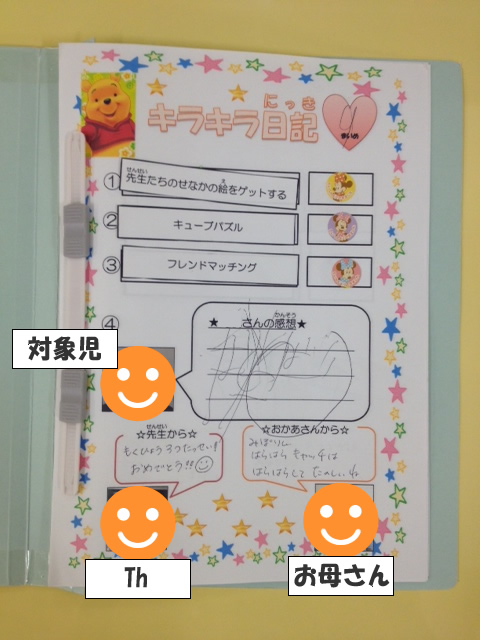 キラキラ日記
にっき
まいめ
①
せんせい
え
先生たちのせなかの絵をゲットする
②
キューブパズル
③
フレンドマッチング
④
かんそう
★ さんの感想★
対象児
せんせい
☆先生から☆
もくひょう 3つたっせい!
おめでとう!!
☆おかあさんから☆
はらはら キャッチは
はらはらして たのしいね
Th
お母さん